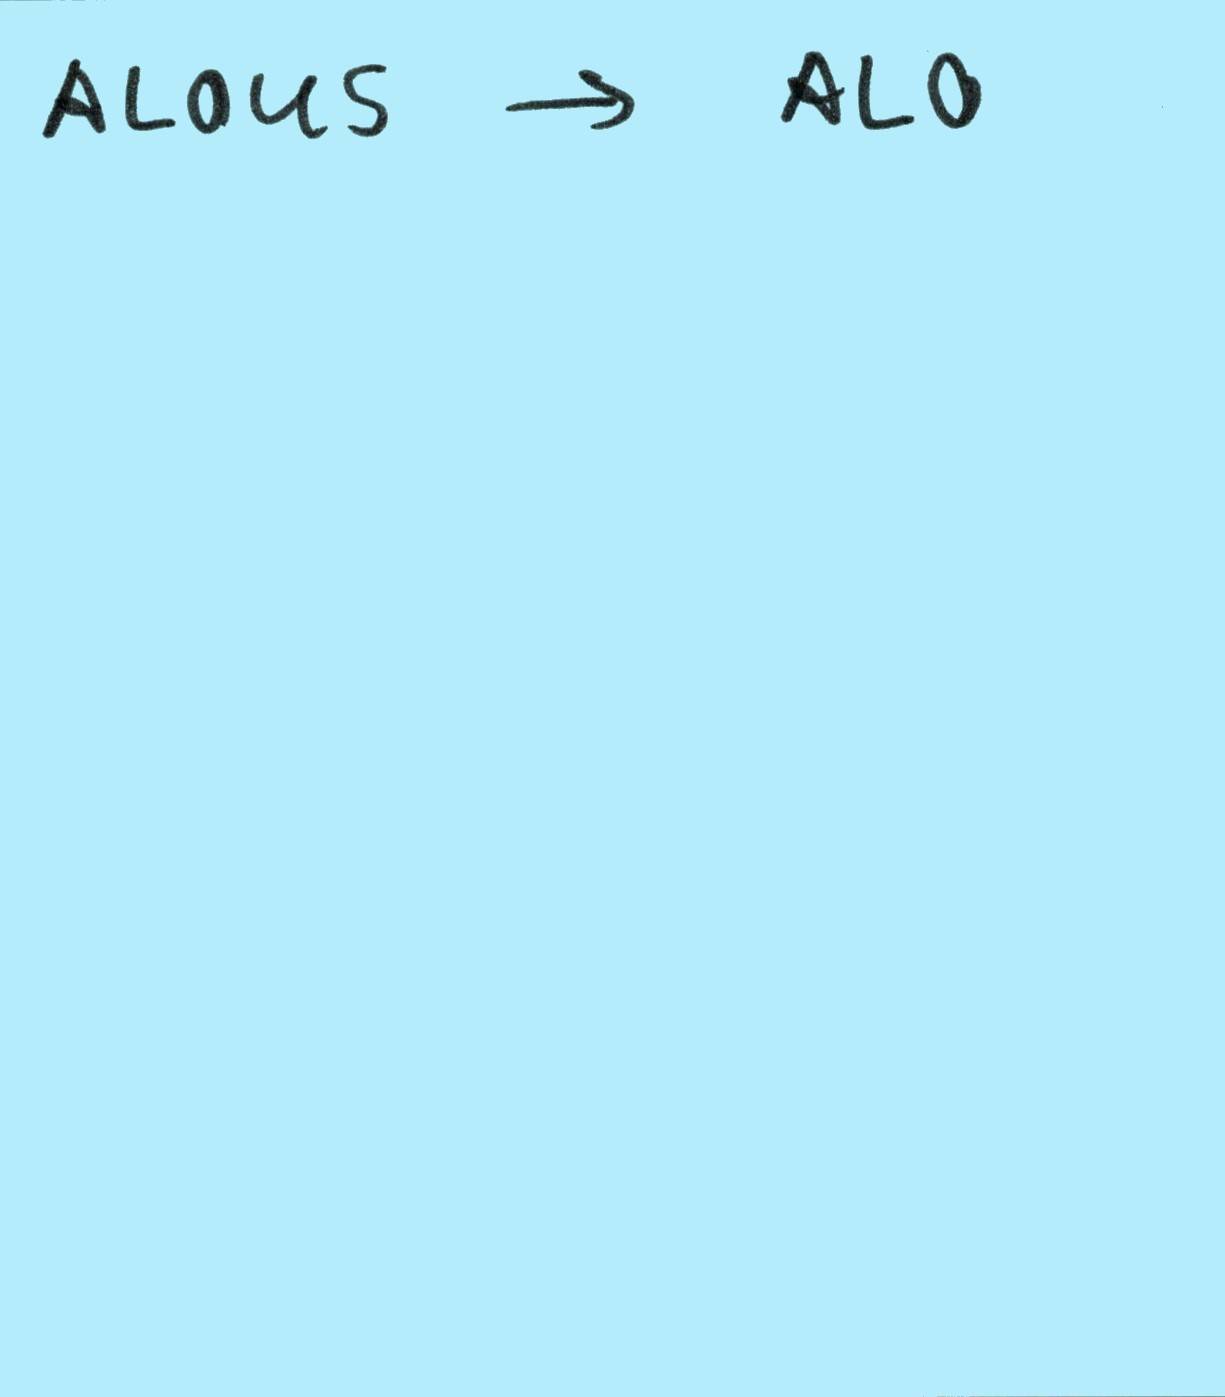 ALOUS → ALO